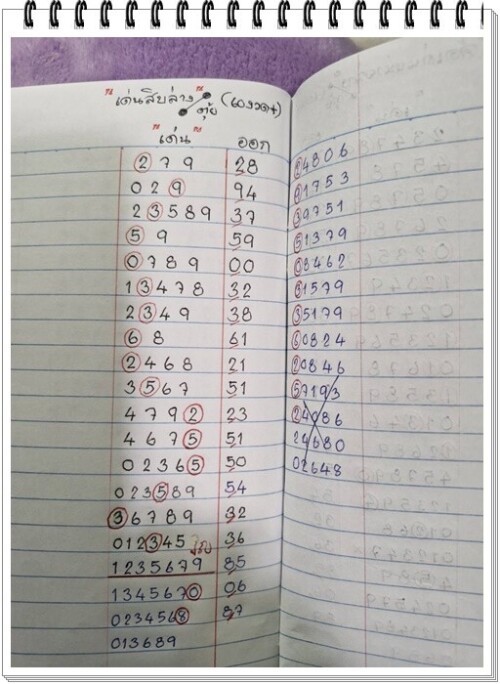 "เด่นสิบล่าง" ตุ้ย (เดงวด+)
"เด่น" ออก
2 7 9 28
0 2 9 94
2 3 5 8 9 37
5 9 59
0 7 8 9 00
1 3 4 7 8 32
2 3 4 9 38
6 8 61
2 4 6 8 21
3 5 6 7 51
4 7 9 2 23
4 6 7 5 51
0 2 3 6 5 50
0 2 3 5 8 9 54
3 6 7 8 9 32
0 1 2 3 4 5 36
1 2 3 5 6 7 9 85
1 3 4 5 6 7 0 06
0 2 3 4 5 6 8 87
0 1 3 6 8 9
2 4 8 0 6
0 1 7 5 3
3 9 7 5 1
5 1 3 7 9
0 8 4 6 2
8 1 5 7 9
3 5 1 7 9
6 0 8 2 4
2 0 8 4 6
5 7 1 9 3
2 4 0 8 6
2 4 6 8 0
0 2 6 4 8